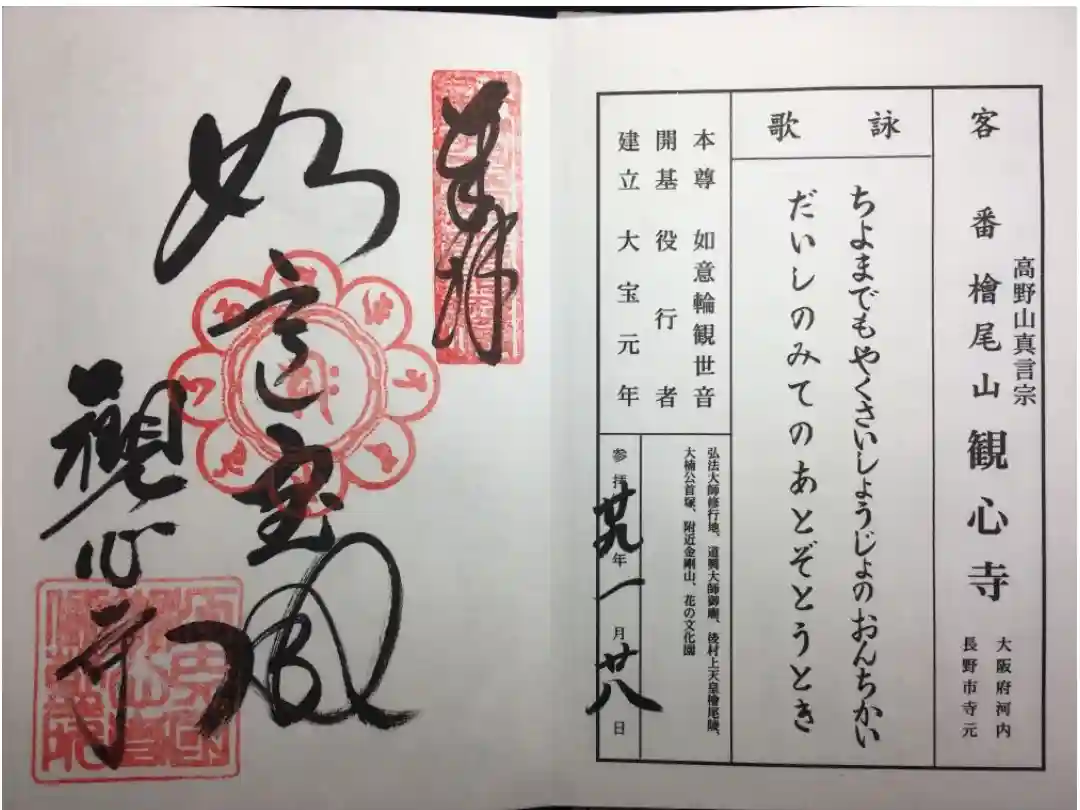 客番 檜尾山 観心寺
高野山真言宗
大阪府河内
長野市寺元
詠歌
ちよまでもやくさいしょうじょのおんちかい
だいしのみてのあとぞとうとき
本尊 如意輪観世音
開基 役行者
建立 大宝元年
弘法大師修行地、道興大師御廟、後村上天皇檜尾陵、
大楠公首塚、附近金剛山、花の文化園
参拝 廿九年一月廿八日
奉拝
如意宝殿
觀心寺